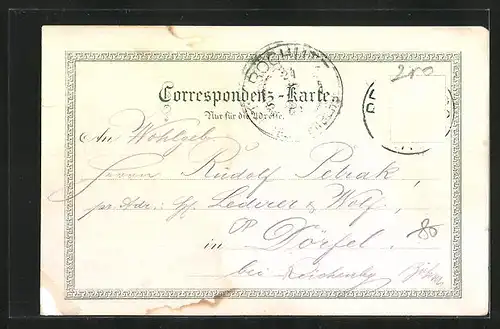 210
ROCHLITZ
Correspondenz-Karte.
Nur für die Adresse.
An Wohlgeb.
Herrn Rudolf Petrak
pr. Adr.: H. Lederer & Wolf
in Dörfel
bei Reichenbg Böhm.
80